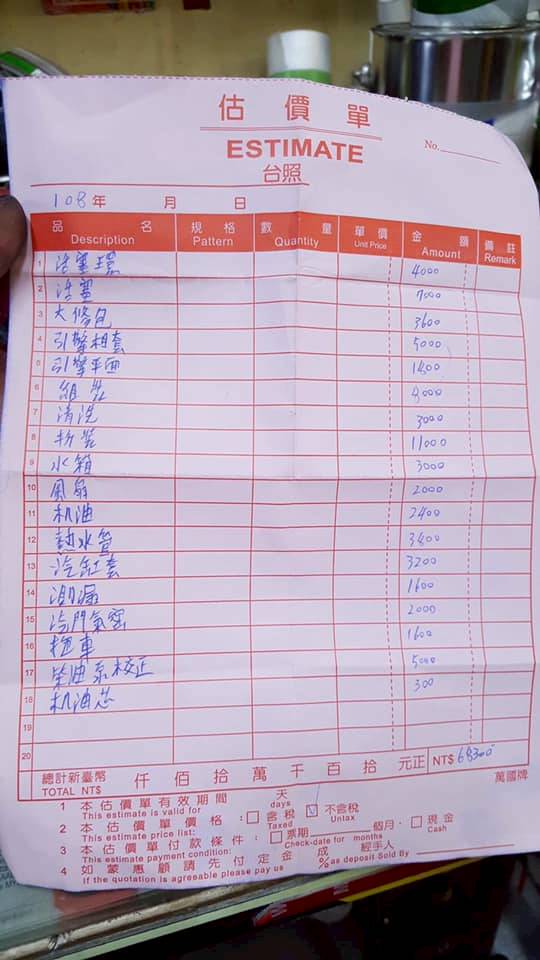 估價單
ESTIMATE
No.
台照
108年 月 日
品名 規格 數量 單價 金額 備註
Description Pattern Quantity Unit Price Amount Remark
1 活塞環 4000
2 活塞 7000
3 大修包 3600
4 引擎相套 5000
5 引擎平面
6 組裝
7 清洗 3000
8 11000
9 水箱 3000
10 風扇 2000
11 机油 2400
12 熱水管
13 汽缸套 3200
14 測漏 1600
15 汽門氣密 2000
16 拖車 1600
17 柴油泵校正 5000
18 机油芯 300
19
20
總計新臺幣 仟佰拾萬千百拾元正 NT$
TOTAL NT$
萬國牌
1 本估價單有效期間 天
This estimate is valid for days
2 本估價單價格:□含稅 ☑不含稅
This estimate price list: Taxed Untax
3 本估價單付款條件:□票期 個月·□現金
This estimate payment condition: Check-date for months Cash
4 如蒙惠顧請先付定金 成 經手人
If the quotation is agresable please pay us %as deposit Sold By